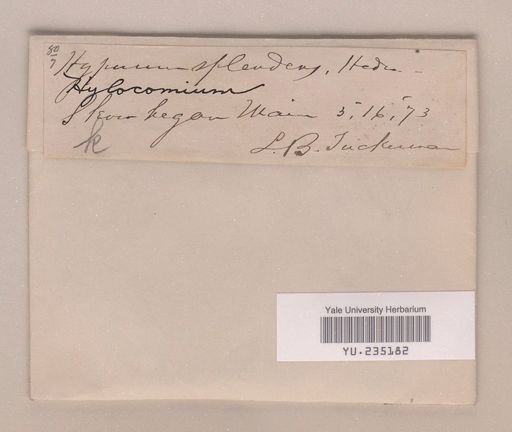 80
7
Hypnum splendens, Hedw
Hylocomium
Skowhegan Main 5, 16, 73
L. B. Tuckerman
k
Yale University Herbarium
YU.235182